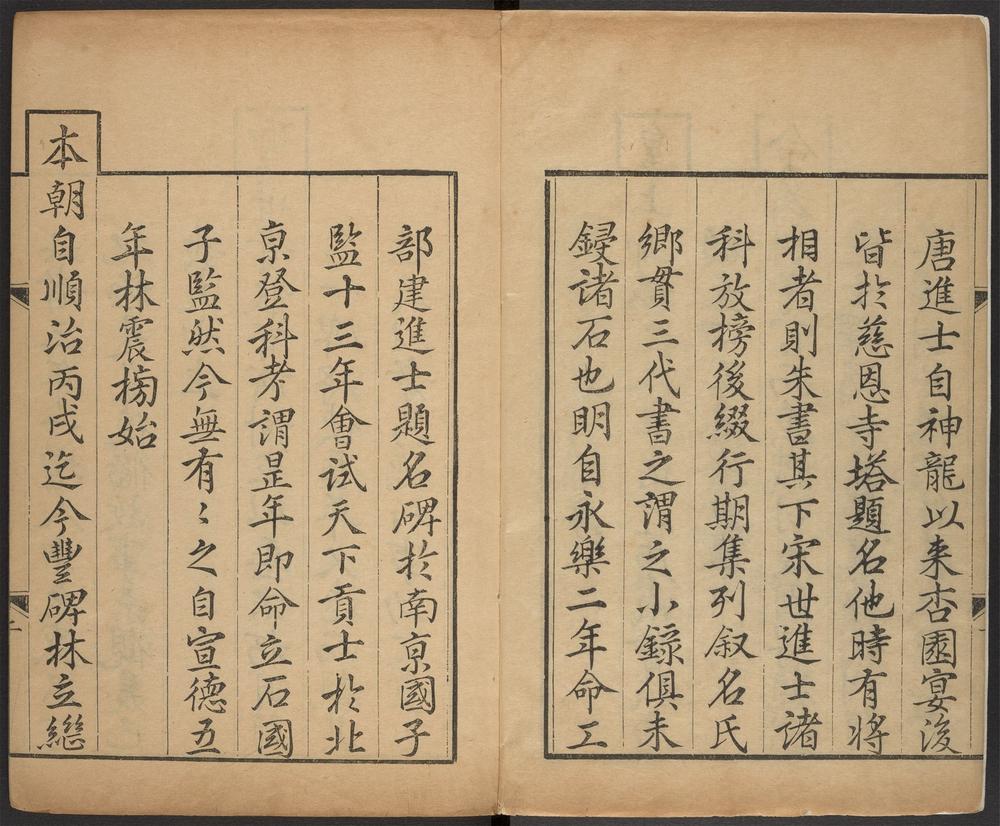 唐進士自神龍以来杏園宴後
皆扵慈恩寺塔題名他時有將
相者則朱書其下宋世進士諸
科放榜後綴行期集列叙名氏
鄉貫三代書之謂之小錄俱未
鋟諸石也明自永樂二年命工
部建進士題名碑扵南京國子
監十三年會試天下貢士扵北
京登科考謂是年即命立石國
子監然今無有〻之自宣德五
年林震榜始
本朝自順治丙戌迄今豐碑林立繼